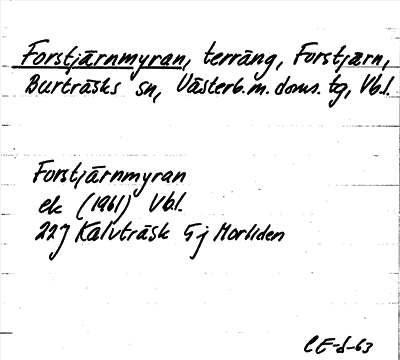 Forstjärnmyran, terräng, Forstjärn,
Burträsks sn, Västerb.m.doms.tg, Vbl.
Forstjärnmyran
ek (1961) Vbl.
22J Kalvträsk 5j Morliden
CE-d-63